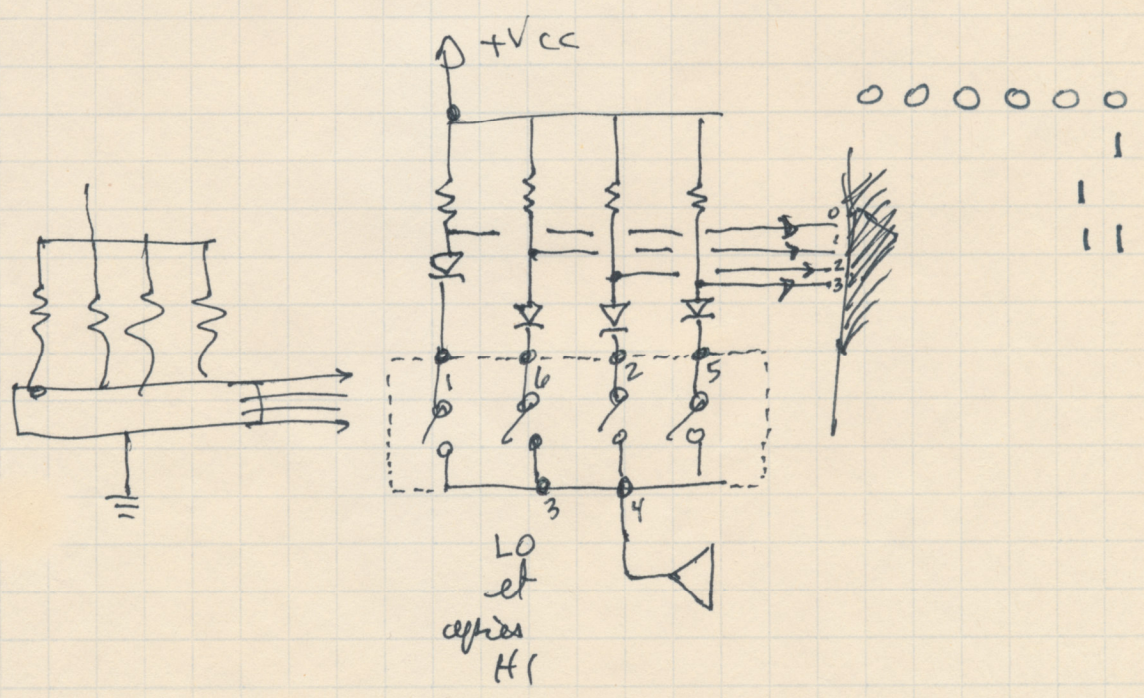 +Vcc
0 0 0 0 0 0
1
1
1 1
0
1
2
3
1 6 2 5
3 4
LO
et
après
HI